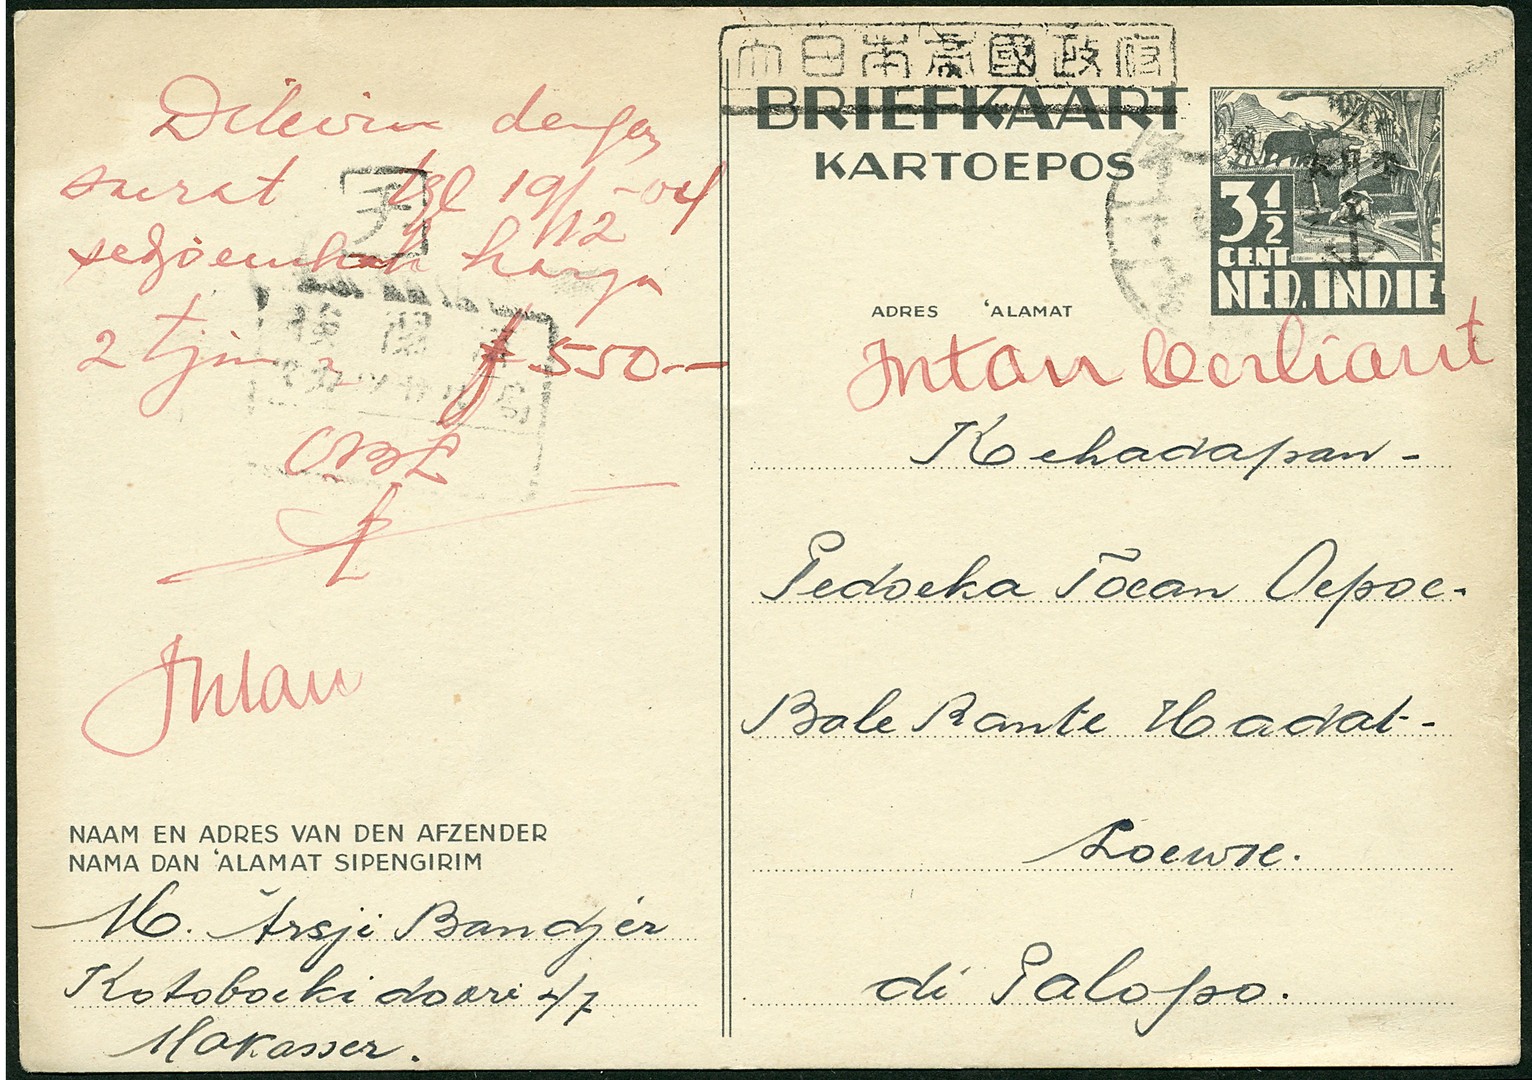 大日本帝國政府
BRIEFKAART
KARTOEPOS
3½
CENT
NED. INDIE
ADRES 'ALAMAT
Intan berliant
Kehadapan-
Pedoeka Toean Oepoe-
Bale Rante Hadat-
Loewoe.
di Palopo.
Dikirim dengan
surat tgl 19/12-04
sedjoemlah harga
2 tjin f 550.-
Intan
NAAM EN ADRES VAN DEN AFZENDER
NAMA DAN 'ALAMAT SIPENGIRIM
M. Arsji Bandjer
Kotoboeki doori 47
Makasser.